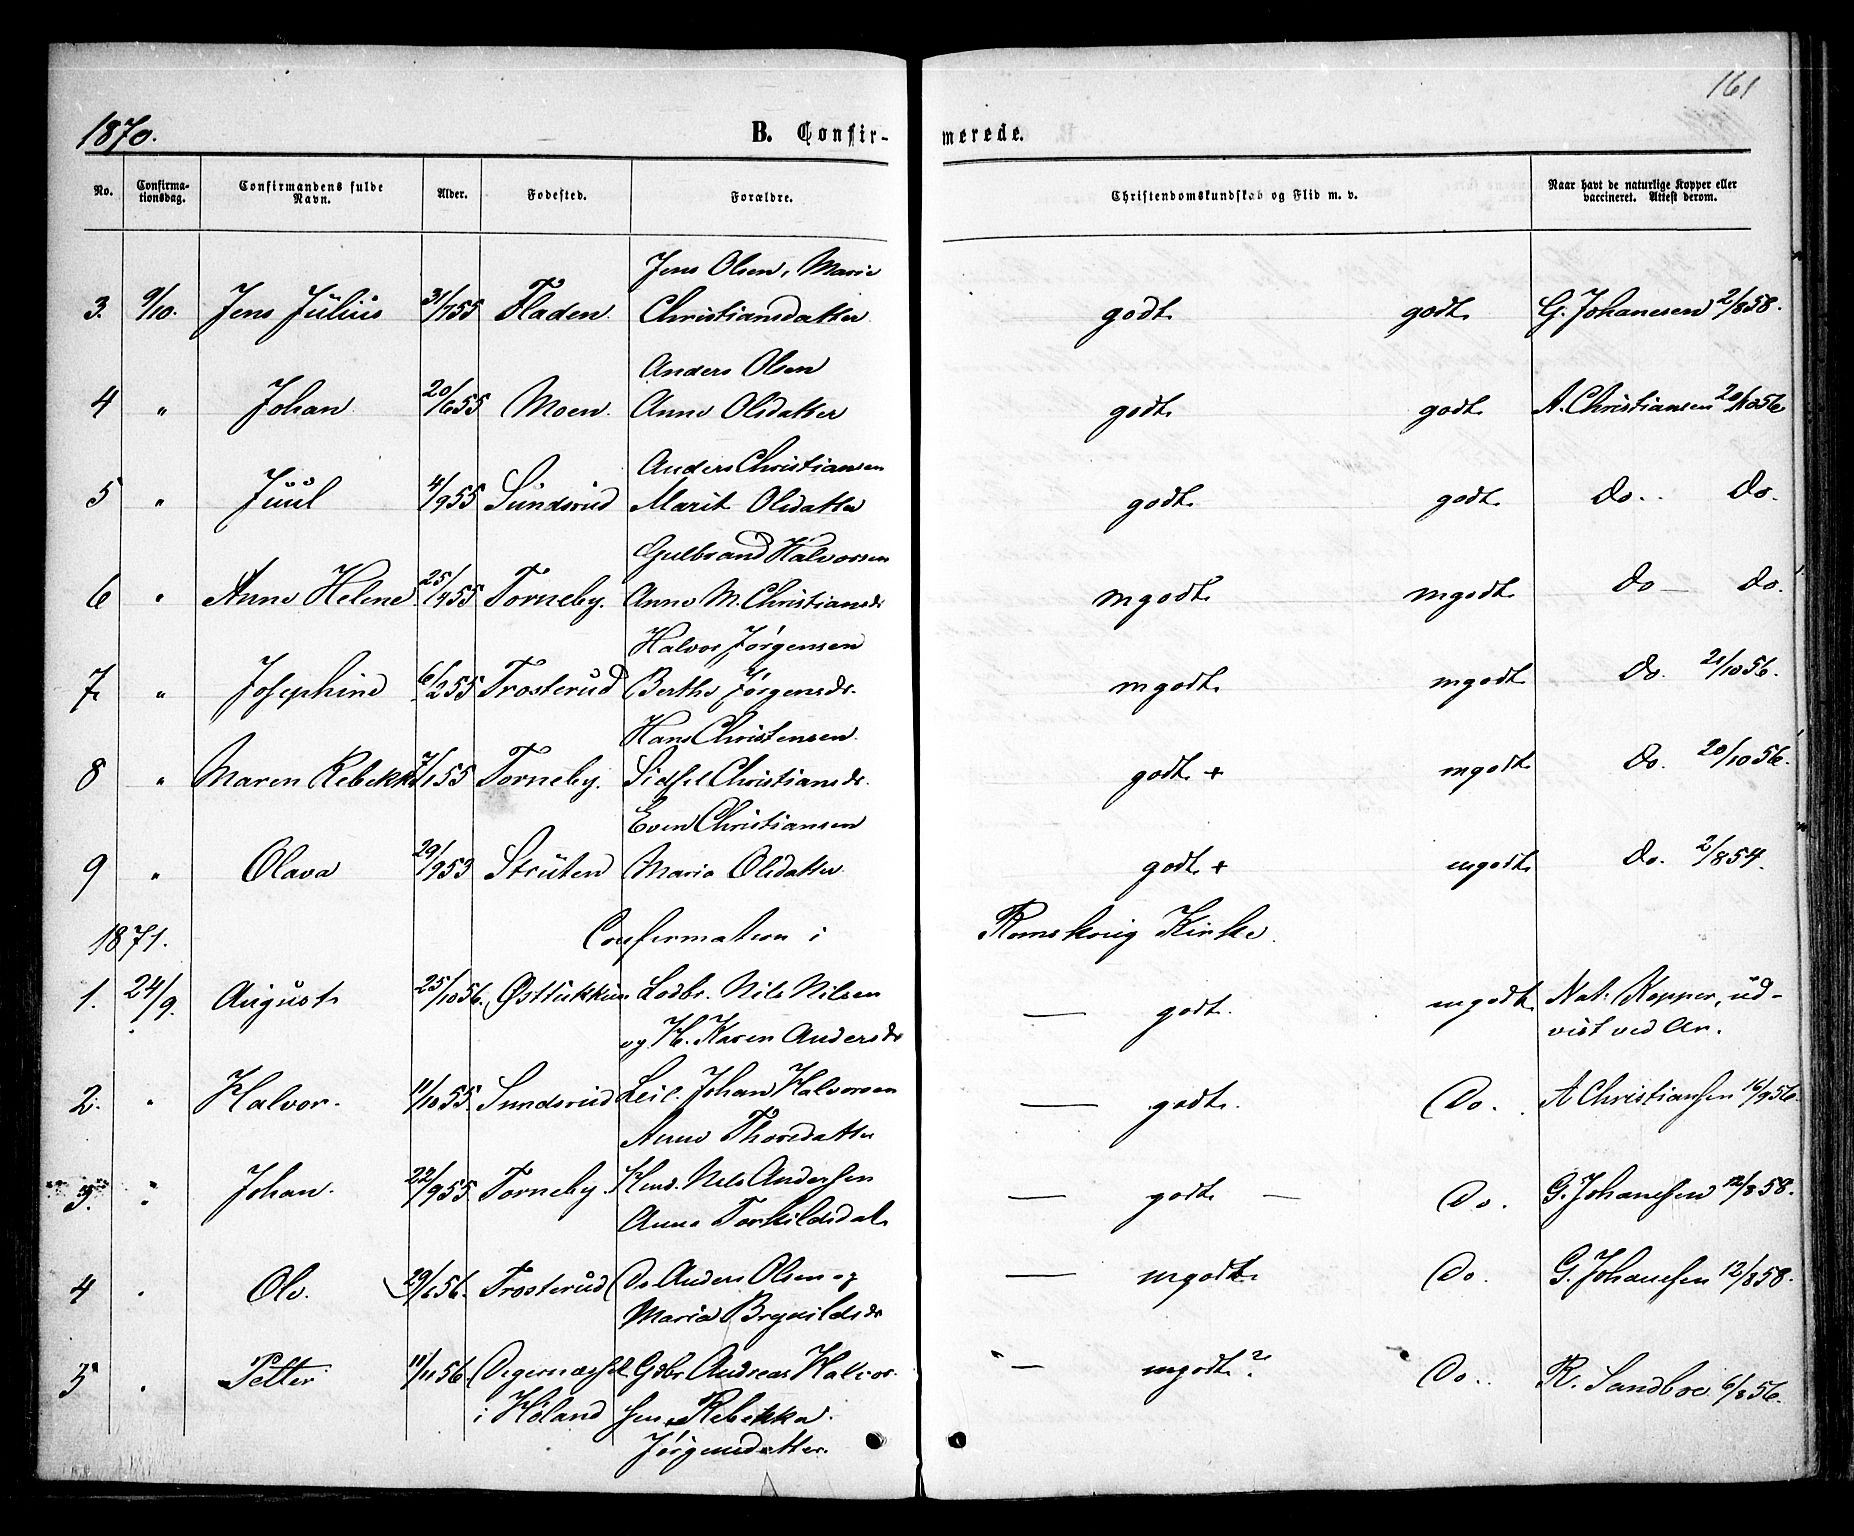 161
1870.
B. Confir- merede.
No. Confirma-tionsdag. Confirmandens fulde Navn. Alder. Fødested. Forældre. Christendomskundskab og Flid m. v. Naar havt de naturlige Kopper eller vaccineret. Attest derom.
Jens Olsen, Marie
3. 9/10. Jens Julius 31/7 55 Fladen Christiansdatter godt godt G. Johanesen 2/8 58.
Anders Olsen
4 " Johan 20/6 55 Moen. Anne Olsdatter godt godt A. Christiansen 20/10 56
Anders Christiansen
5 " Juul 4/9 55 Sundsrud Marit Olsdatter godt godt Do. Do.
Gulbrand Halvorsen
6 " Anne Helene 25/4 55 Torneby. Anne M. Christiansdr mgodt mgodt Do — Do.
Halvor Jørgensen
7. " Josephine 6/2 55 Trosterud Berthe Jørgensdr. mgodt mgodt Do. 21/10 56.
Hans Christensen.
8 " Maren Rebekka 7/1 55 Torneby. Sidsel Christiansdr. godt + mgodt Do. 20/10 56.
Even Christiansen
9 " Olava 29/9 53 Struten Maria Olsdatter godt + mgodt Do. 2/8 54.
1871. Confirmation i Romskoug Kirke.
1. 24/9. August 25/10 56. Lodbr. Nils Nilsen — godt. mgodt Nat: Kopper, ud-
og H. Karen Andersdr vist ved Ar.
2. " Halvor. 11/10 55. Sundsrud Leil. Johan Halvorsen — godt. Do. A Christiansen 16/9 56.
Anne Thorsdatter
3. " Johan. 22/9 55 Torneby. Huusm. Nels Andersen — godt — Do. G. Johanesen 12/8 58.
Anne Torkildsdat.
4 " Ole. 29/6 56. Trosterud Do Anders Olsen og — mgodt Do. G. Johanesen 12/8 58.
Maria Brynildsdr
5 " Petter 11/11 56 Gdbr. Andreas Halvor- — mgodt? Do. R. Sandboe 6/8 56.
i Høland sen Rebekka
Jørgensdatter.